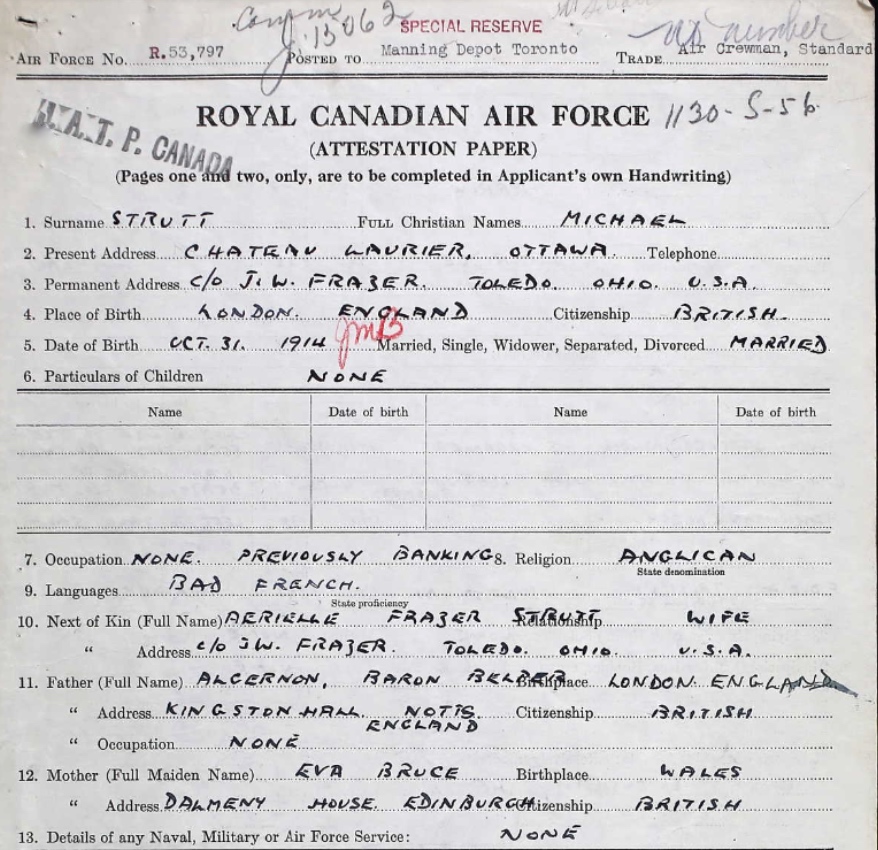 Comm
J.13062
SPECIAL RESERVE
AIR FORCE NO. R.53,797 POSTED TO Manning Depot Toronto TRADE Air Crewman, Standard
no number
ROYAL CANADIAN AIR FORCE 1130-S-56
A.T.P. CANADA
(ATTESTATION PAPER)
(Pages one and two, only, are to be completed in Applicant's own Handwriting)
1. Surname STRUTT FULL Christian Names MICHAEL
2. Present Address CHATEAU LAURIER, OTTAWA. Telephone
3. Permanent Address c/o J.W. FRAZER. TOLEDO. OHIO. U.S.A.
4. Place of Birth LONDON. ENGLAND Citizenship BRITISH.
5. Date of Birth OCT. 31. 1914 JMB Married, Single, Widower, Separated, Divorced MARRIED
6. Particulars of Children NONE
Name Date of birth Name Date of birth
7. Occupation NONE. PREVIOUSLY BANKING 8. Religion ANGLICAN
State denomination
9. Languages BAD FRENCH.
State proficiency
10. Next of Kin (Full Name) AERIELLE FRAZER STRUTT Relationship WIFE
" Address c/o J.W. FRAZER. TOLEDO. OHIO. U.S.A.
11. Father (Full Name) ALGERNON, BARON BELPER Birthplace LONDON. ENGLAND
" Address KINGSTON HALL NOTTS. Citizenship BRITISH
ENGLAND
" Occupation NONE
12. Mother (Full Maiden Name) EVA BRUCE Birthplace WALES
" Address DALMENY HOUSE EDINBURGH Citizenship BRITISH
13. Details of any Naval, Military or Air Force Service: NONE